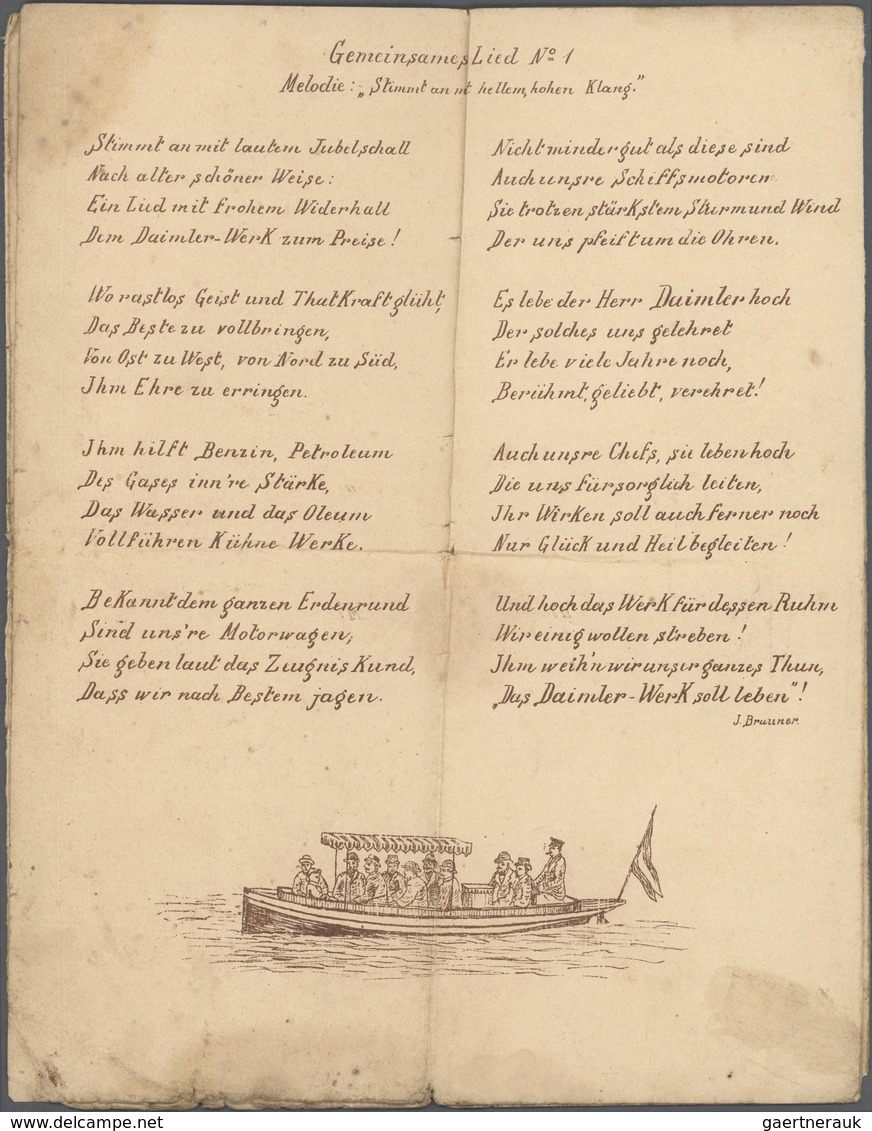 Gemeinsames Lied No 1
Melodie: „Stimmt an mit hellem, hohen Klang."
Stimmt an mit lautem Jubelschall
Nach alter schöner Weise:
Ein Lied mit frohem Widerhall
Dem Daimler-Werk zum Preise!
Wo rastlos Geist und Thatkraft glüht,
Das Beste zu vollbringen,
Von Ost zu West, von Nord zu Süd,
Ihm Ehre zu erringen.
Ihm hilft Benzin, Petroleum
Des Gases inn're Stärke,
Das Wasser und das Oleum
Vollführen Kühne Werke.
Bekannt dem ganzen Erdenrund
Sind uns're Motorwagen,
Sie geben laut das Zeugnis Kund,
Dass wir nach Bestem jagen.
Nicht minder gut als diese sind
Auch unsre Schiffsmotoren
Sie trotzen stärkstem Sturm und Wind
Der uns pfeift um die Ohren.
Es lebe der Herr Daimler hoch
Der solches uns gelehret
Er lebe viele Jahre noch,
Berühmt, geliebt, verehret!
Auch unsre Chefs, sie leben hoch
Die uns fürsorglich leiten,
Ihr Wirken soll auch ferner noch
Nur Glück und Heil begleiten!
Und hoch das Werk für dessen Ruhm
Wir einig wollen streben!
Ihm weih'n wir unser ganzes Thun,
„Das Daimler-Werk soll leben"!
J. Brauner.
www.delcampe.net
gaertnerauk